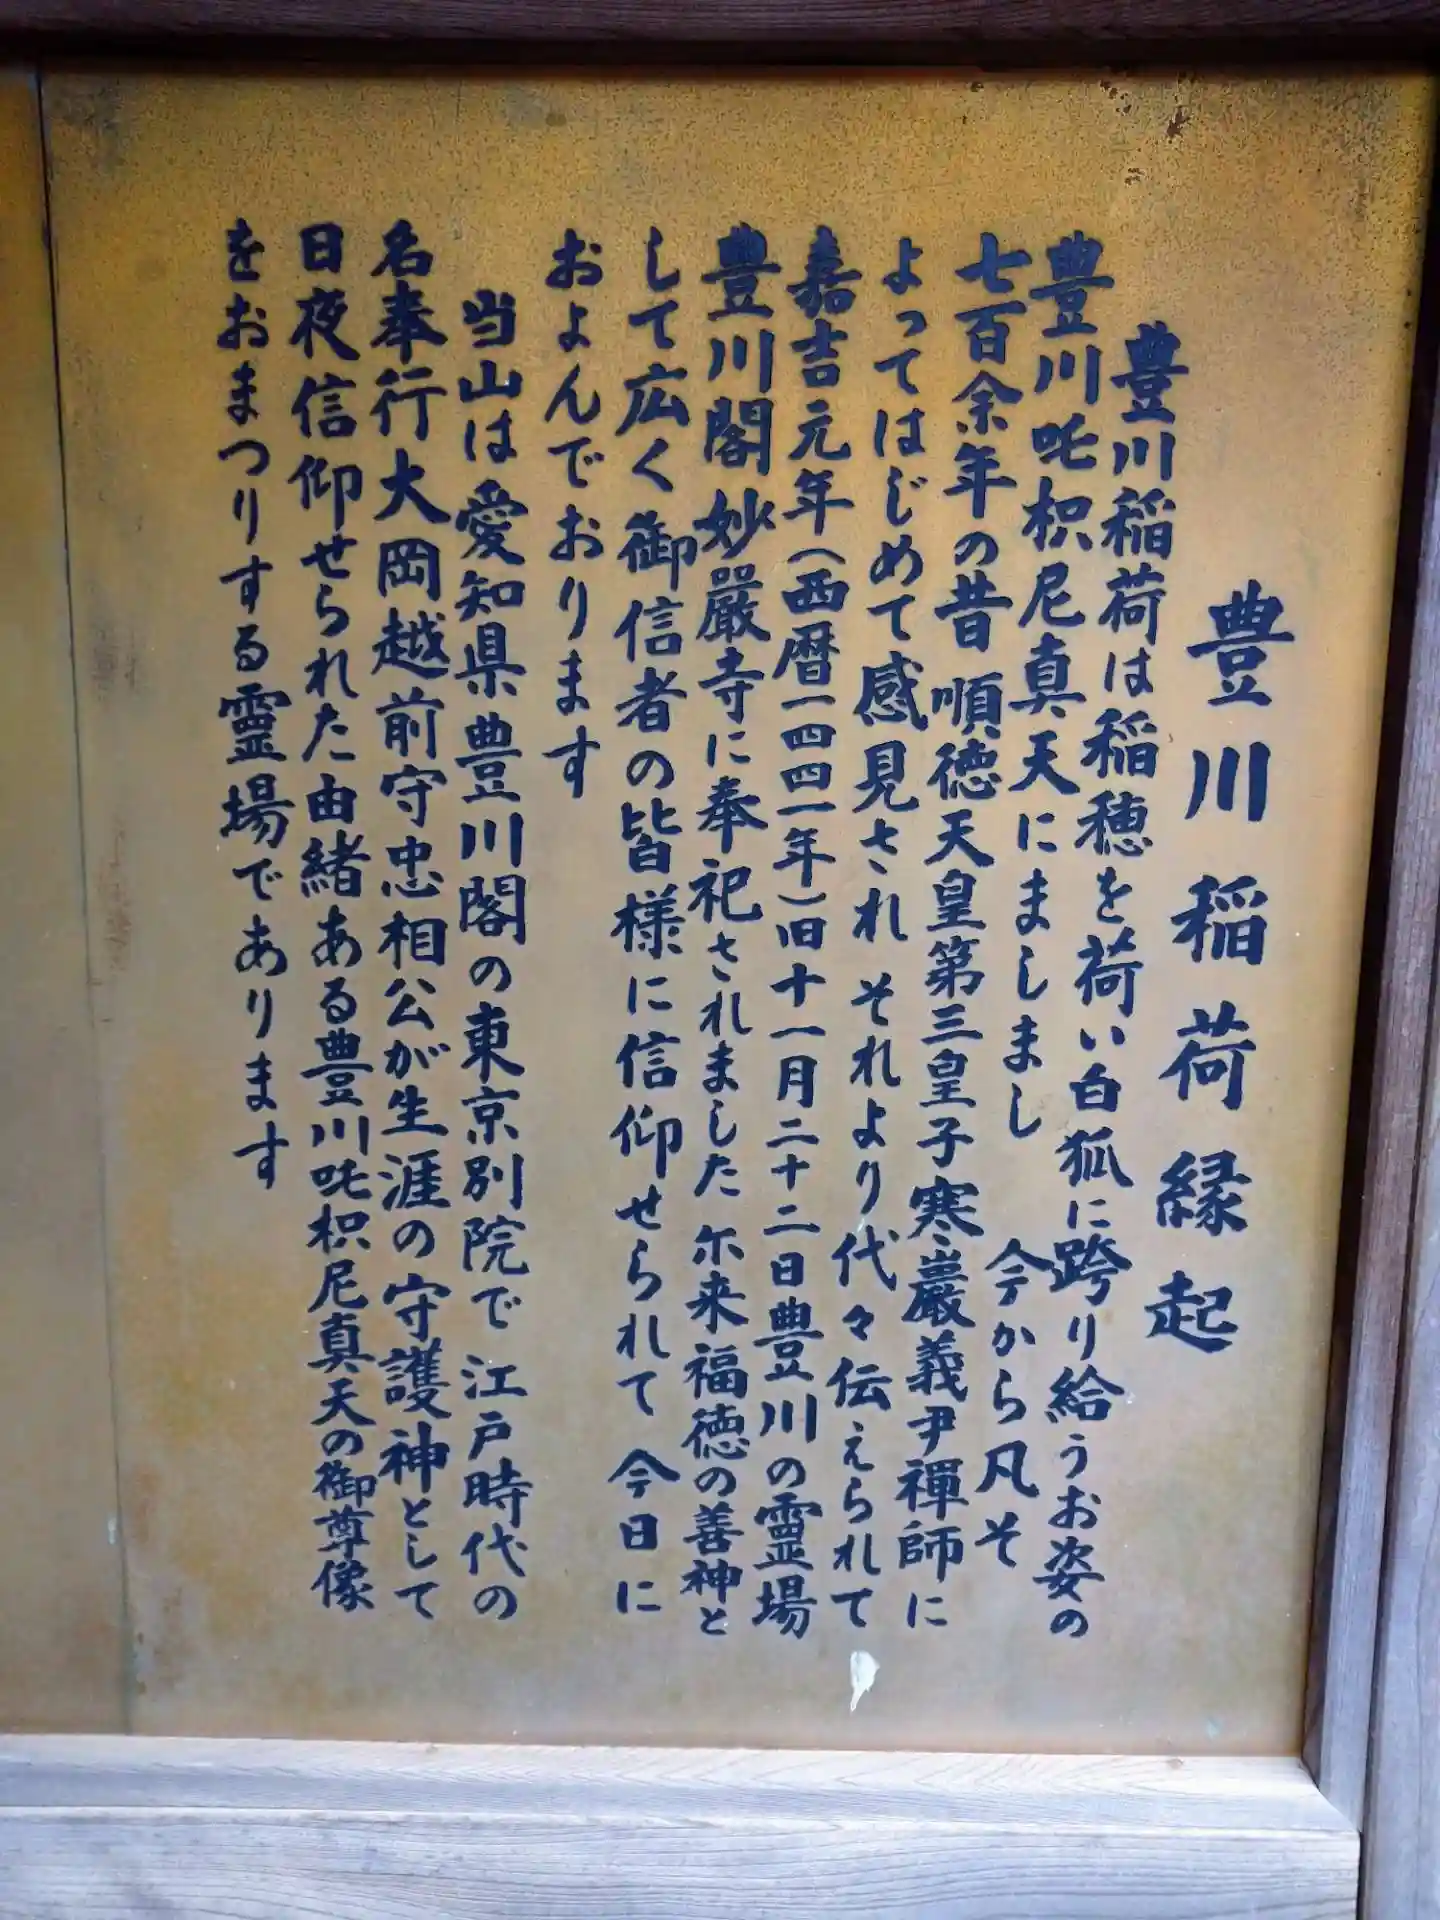 豊川稲荷縁起
豊川稲荷は稲穂を荷い白狐に跨り給うお姿の
豊川吒枳尼真天にましまし　今から凡そ
七百余年の昔 順徳天皇第三皇子寒巖義尹禪師に
よってはじめて感見され それより代々伝えられて
嘉吉元年(西暦一四四一年)旧十一月二十二日豊川の霊場
豊川閣 妙嚴寺に奉祀されました 尓来福徳の善神と
して広く御信者の皆様に信仰せられて 今日に
およんでおります
当山は愛知県豊川閣の東京別院で 江戸時代の
名奉行大岡越前守忠相公が生涯の守護神として
日夜信仰せられた由緒ある豊川吒枳尼真天の御尊像
をおまつりする霊場であります